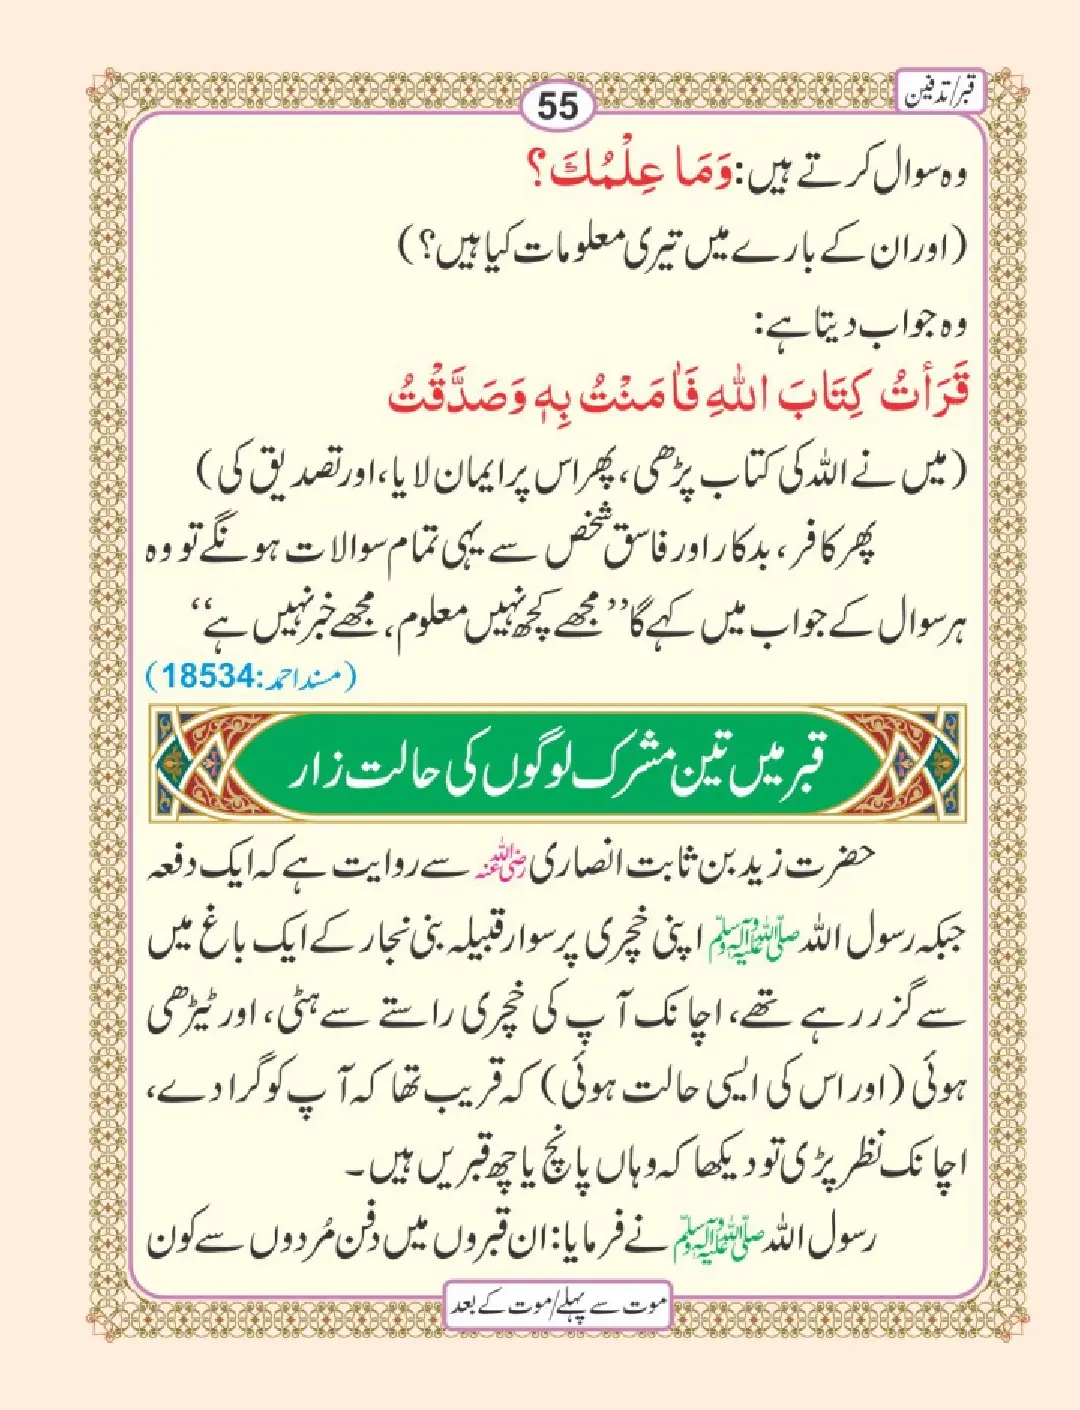 قبر/تدفین
55
وہ سوال کرتے ہیں: وَمَا عِلْمُكَ؟
(اور ان کے بارے میں تیری معلومات کیا ہیں؟)
وہ جواب دیتا ہے:
قَرَأتُ كِتَابَ اللهِ فَاٰمَنْتُ بِهٖ وَصَدَّقْتُ
(میں نے اللہ کی کتاب پڑھی، پھر اس پر ایمان لایا، اور تصدیق کی)
پھر کافر، بدکار اور فاسق شخص سے یہی تمام سوالات ہونگے تو وہ
ہر سوال کے جواب میں کہے گا ’’مجھے کچھ نہیں معلوم، مجھے خبر نہیں ہے‘‘
(مسند احمد: 18534)
قبر میں تین مشرک لوگوں کی حالت زار
حضرت زید بن ثابت انصاری رضی اللہ عنہ سے روایت ہے کہ ایک دفعہ
جبکہ رسول اللہ صلی اللہ علیہ وآلہ وسلم اپنی خچری پر سوار قبیلہ بنی نجار کے ایک باغ میں
سے گزر رہے تھے، اچانک آپ کی خچری راستے سے ہٹی، اور ٹیڑھی
ہوئی (اور اس کی ایسی حالت ہوئی) کہ قریب تھا کہ آپ کو گرا دے،
اچانک نظر پڑی تو دیکھا کہ وہاں پانچ یا چھ قبریں ہیں۔
رسول اللہ صلی اللہ علیہ وآلہ وسلم نے فرمایا: ان قبروں میں دفن مُردوں سے کون
موت سے پہلے/موت کے بعد